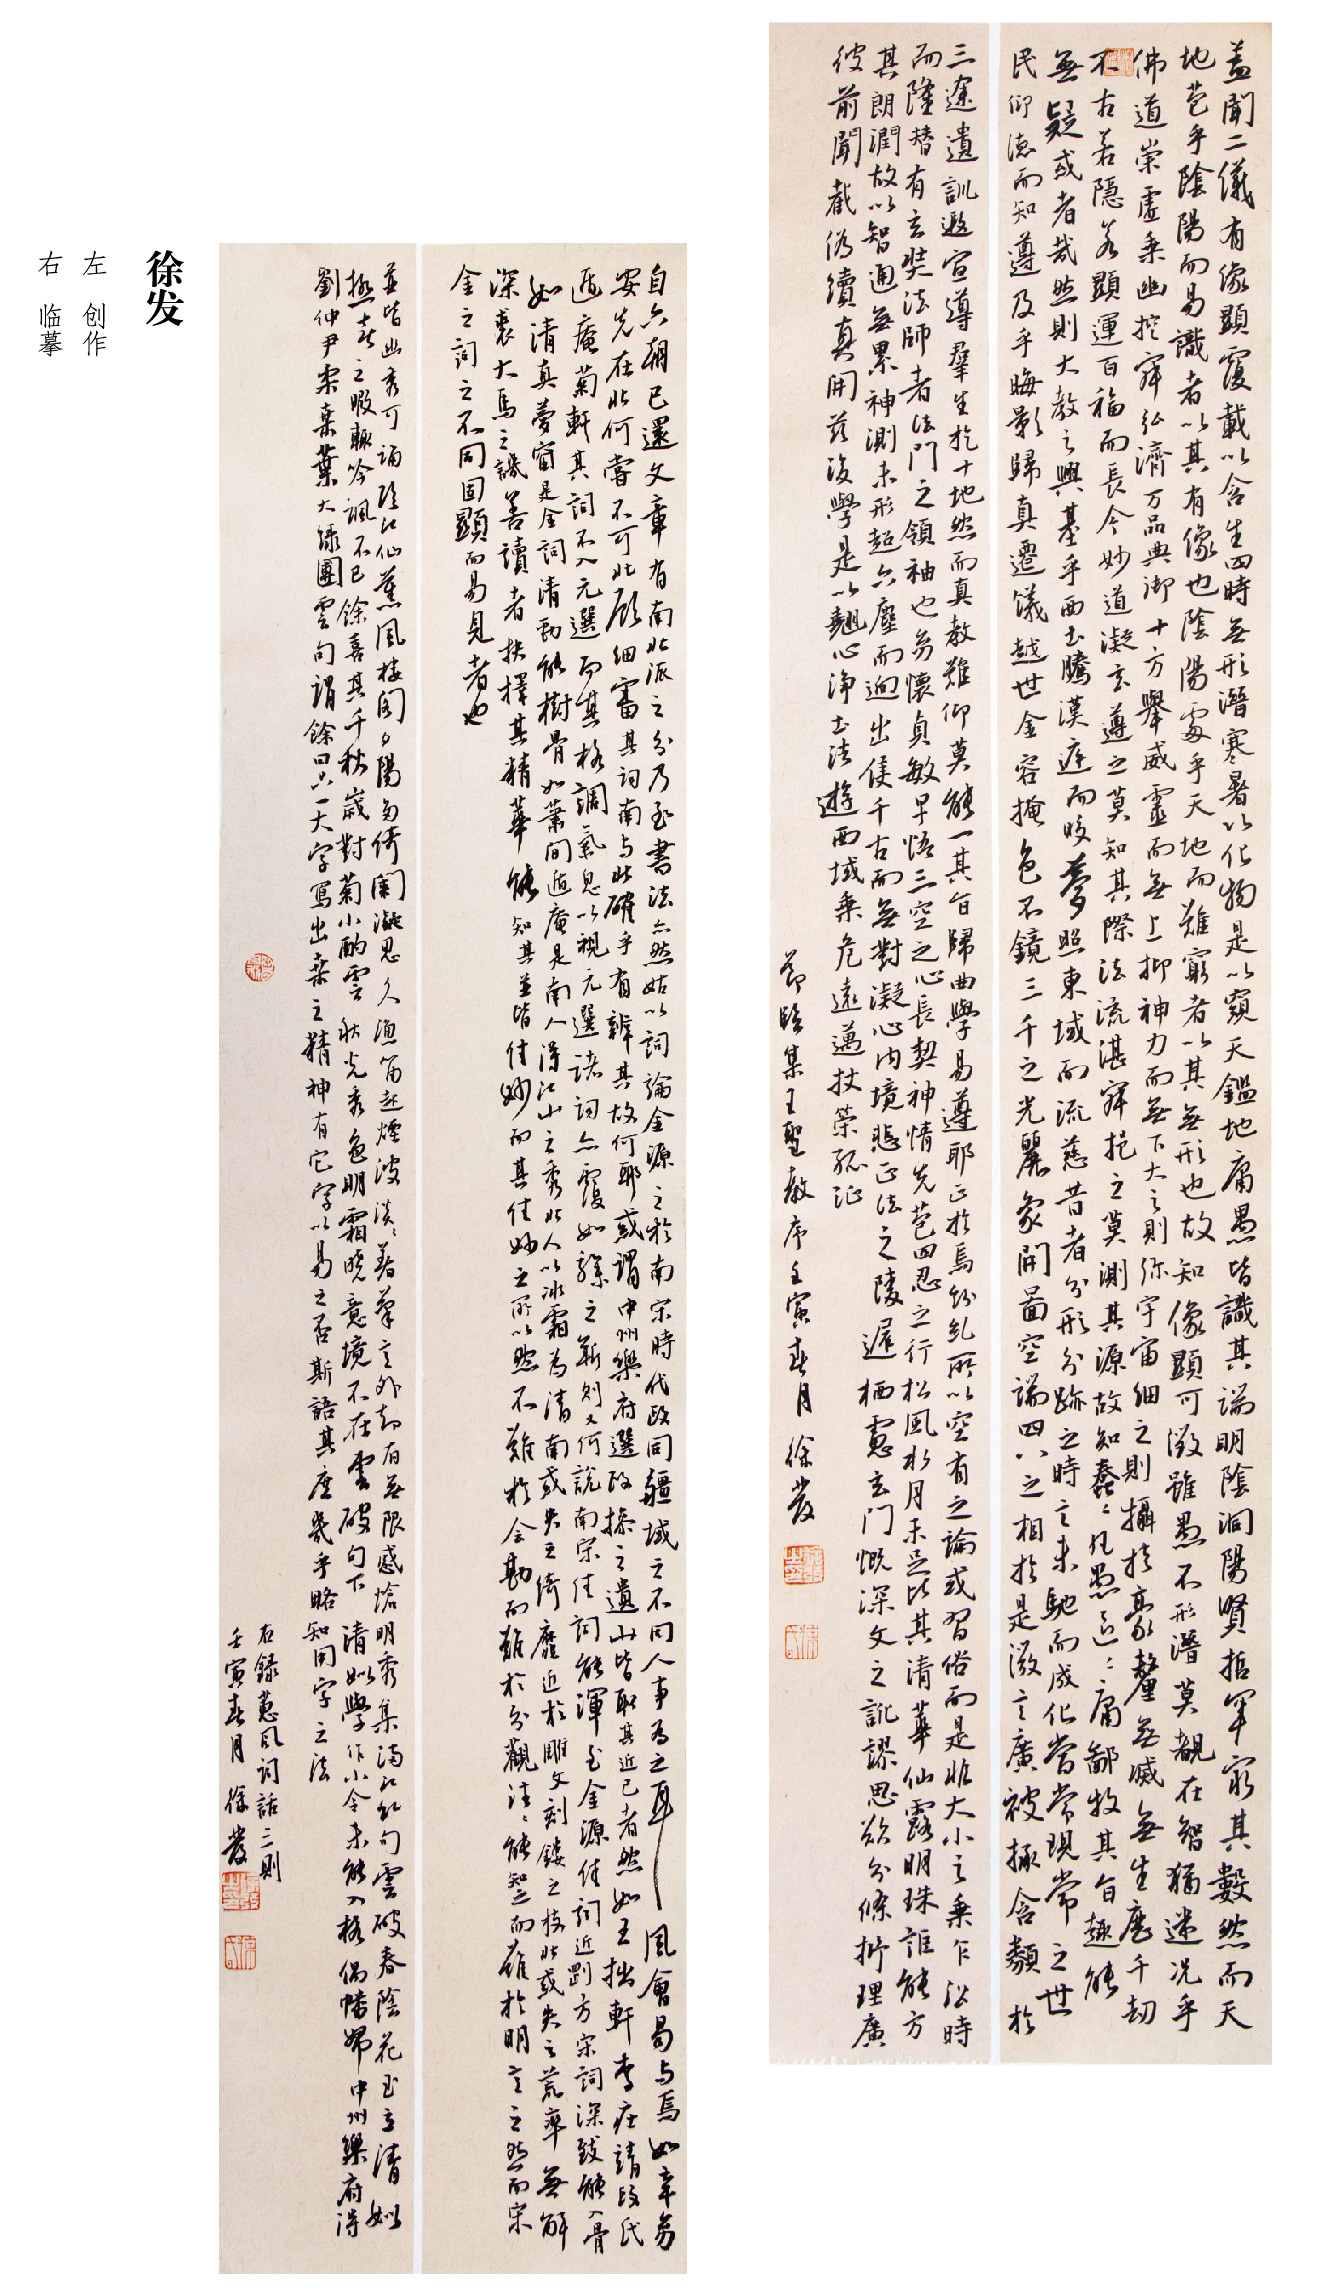 蓋聞二儀有像顯覆載以含生四時無形潛寒暑以化物是以窺天鑑地庸愚皆識其端明陰洞陽賢哲罕窮其數然而天
地苞乎陰陽而易識者以其有像也陰陽處乎天地而難窮者以其無形也故知像顯可徵雖愚不形潛莫覩在智猶迷況乎
佛道崇虛乘幽控寂弘濟万品典御十方舉威靈而無上抑神力而無下大之則弥宇宙細之則攝於豪釐無滅無生歷千劫
不古若隱若顯運百福而長今妙道凝玄遵之莫知其際法流湛寂挹之莫測其源故知蠢〻凡愚區〻庸鄙投其旨趣能
無疑或者哉然則大教之興基乎西土騰漢庭而皎夢照東域而流慈昔者分形分跡之時言未馳而成化當常現常之世
民仰德而知遵及乎晦影歸真遷儀越世金容掩色不鏡三千之光麗象開圖空端四八之相於是微言廣被拯含類於
三途遺訓遐宣導羣生於十地然而真教難仰莫能一其旨歸曲學易遵耶正於焉紛糺所以空有之論或習俗而是非大小之乘乍沿時
而隆替有玄奘法師者法門之領袖也幼懷貞敏早悟三空之心長契神情先苞四忍之行松風水月未足比其清華仙露明珠詎能方
其朗潤故以智通無累神測未形超六塵而迥出隻千古而無對凝心內境悲正法之陵遲栖慮玄門慨深文之訛謬思欲分條析理廣
彼前聞截偽續真開茲後學是以翹心淨土法遊西域乘危遠邁杖策孤征
節臨集王聖教序壬寅春月徐發
自六朝已還文章有南北派之分乃至書法亦然姑以詞論金源之於南宋時代政同疆域之不同人事為之耳風會曷與焉如辛幼
安先在北何嘗不可北顧細審其詞南與北確乎有辨其故何耶或謂中州樂府選政操之遺山皆取其近己者然如王拙軒李莊靖段氏
遯庵菊軒其詞不入元選而其格調氣息以視元選諸詞亦復如驂之靳則又何說南宋佳詞能渾至金源佳詞近剛方宋詞深致能入骨
如清真夢窗是金詞清勁能樹骨如蕭閒遯庵是南人得江山之秀北人以冰霜為清南或失之綺靡近於雕文刻鏤之技北或失之荒率無解
深裘大馬之譏善讀者抉擇其精華能知其並皆佳妙而其佳妙之所以然不難於合勘而難於分觀往〻能知之而難於明言之然而宋
金之詞之不同固顯而易見者也
並皆幽秀可誦臨江仙蕉風樓閣夕陽勾倚闌凝思久漁笛起煙波淡〻著筆言外却有無限感愴明秀集滿江紅句雲破春陰花玉立清姒
極喜之暇輒吟諷不已餘喜其千秋歲對菊小酌雲秋光秀色明霜曉意境不在雲破句下清姒學作小令未能入格偶幡帚中州樂府得
劉仲尹柔桑葉大綠團雲句謂餘曰只一大字寫出桑之精神有它字以易之否斯語其庶幾乎略知用字之法
右錄蕙風詞話三則
壬寅春月徐發
徐发
左 创作
右 临摹